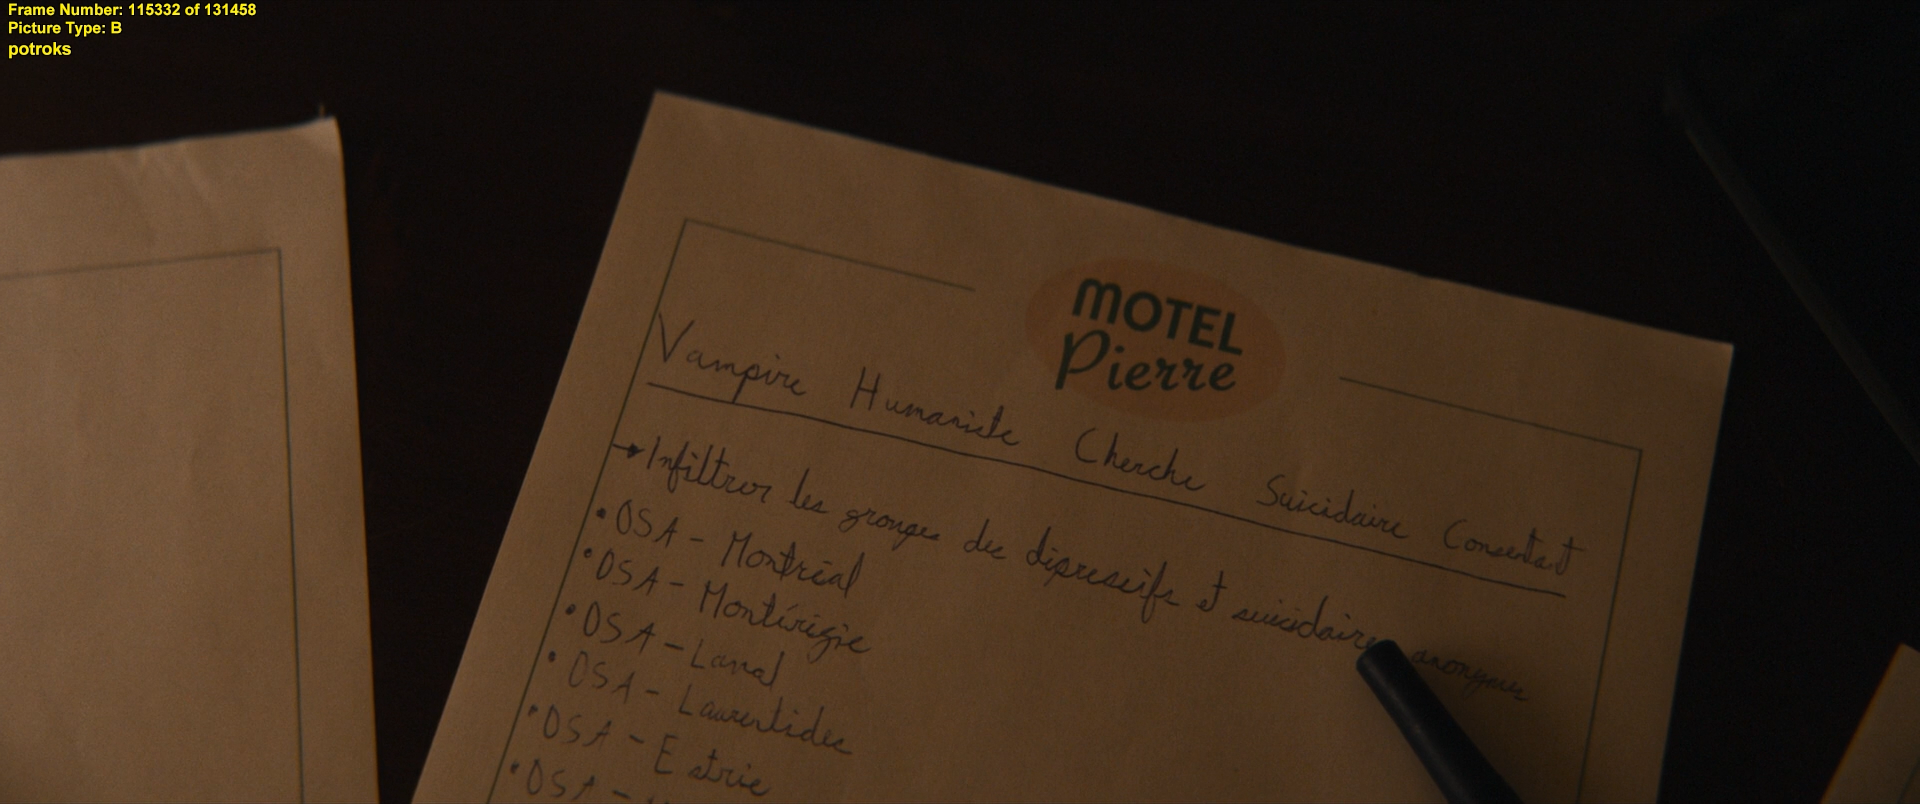 Frame Number: 115332 of 131458
Picture Type: B
potroks
MOTEL
Pierre
Vampire Humaniste Cherche Suicidaire Consentant
→ Infiltrer les groupes des dépressifs et suicidaires anonymes
• DSA - Montréal
• DSA - Montérégie
• DSA - Laval
• DSA - Laurentides
• DSA - Estrie
• DSA -